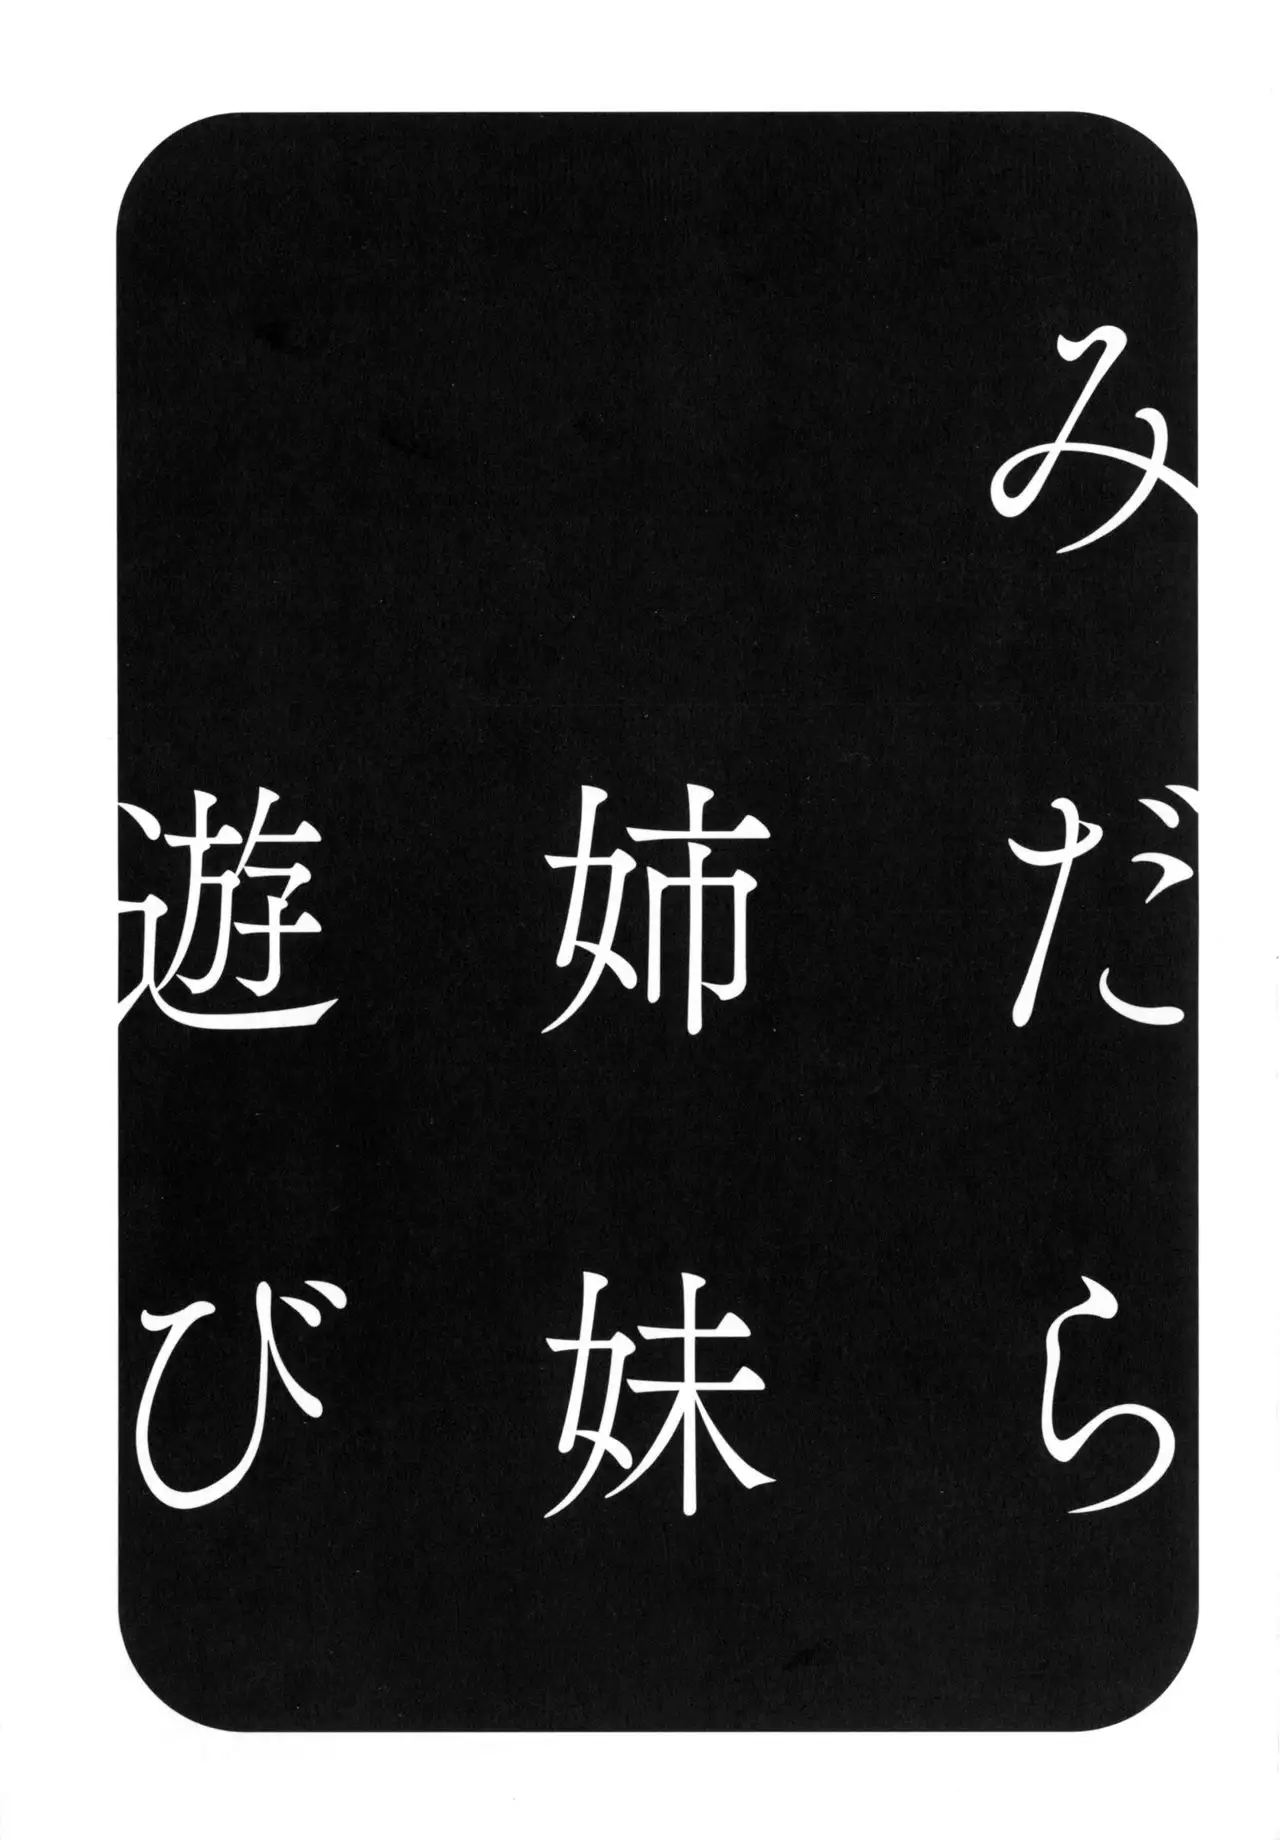 みだら
姉妹
遊び